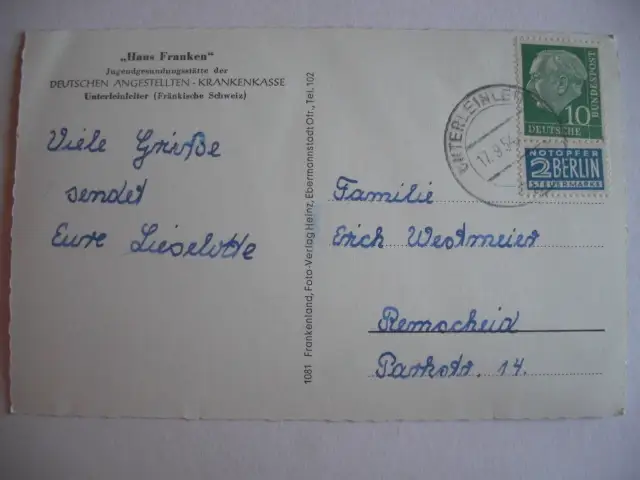 „Haus Franken“
Jugendgesundungsstätte der
DEUTSCHEN ANGESTELLTEN-KRANKENKASSE
Unterleinleiter (Fränkische Schweiz)
Viele Grüße
sendet
Eure Lieselotte
1081 Frankenland, Foto-Verlag Heinz, Ebermannstadt Ofr., Tel. 102
UNTERLEINLE
17.9.54
10
DEUTSCHE
BUNDESPOST
NOTOPFER
2 BERLIN
STEUERMARKE
Familie
Erich Westmeier
Remscheid
Parkstr. 14.